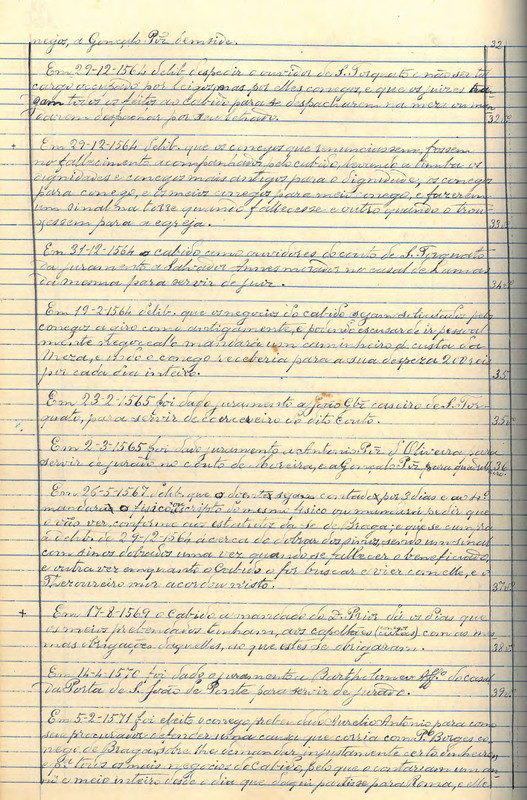 negas, a Gonçalo Piz demsido. 32
Em 29-12-1564 delib. despedir o ouvidor de S. Torquato e não ser tal
cargo occupado por leigos, mas por elles conegos, e que os juizes tra-
gam todos os feitos ao cabido para se despacharem na meza ou man-
darem despachar por seu letrado. 32 v
+ Em 29-12-1564 delib. que os conegos que renunciassem, fossem
no fallecimento acompanhados pelo cabido, levando a tumba os
dignidades e conegos mais antigos para o Dignidade, os conegos
para conego, e os meios conegos para meio conego, e fazerem
um sinal na torre quando fallecesse e outro quando o trou-
xessem para a egreja. 33 v
Em 31-12-1564 o cabido como ouvidores do couto de S. Torquato
da juramento a Salvador Annes morador no casal de
da mesma para servir de juiz. 34
Em 19-2-1564 delib. que os negocios do cabido sejam solicitados pelos
conegos a giro como antigamente, e podendo escusar de ir pessoal-
mente a negocial-o mandará um caminheiro á custa da
Meza, e indo o conego receberia para a sua despeza 200 reis
por cada dia inteiro. 35
Em 23-2-1565 foi dado juramento a João Glz caseiro de S. Tor-
quato, para servir de carcereiro do dito Couto. 35 v
Em 2-3-1565 foi dado juramento a Antonio Piz d'Oliveira para
servir de jurado no couto de Moreira, e a Gonçalo Piz para quadrilheiro. 36
Em 26-5-1567 delib. que o doente sejam contado por 3 dias e ao 4º
mandará o fisico ou escripto do mesmo fisico ou menuira pedir que
o vão ver, conforme aos estatutos da Sé de Braga; e que se cumpra
a delib. de 29-12-1564 ácerca de dobrar dos sinos, sendo um sinal
com sinos dobrados uma vez quando se fallecer o beneficiado,
e outra vez enquanto o Cabido o for buscar e vier com elle, e o
Thezoureiro mór acordou n'isto. 37 v
+ Em 17-8-1569 o Cabido a mandado do D. Prior dá os dias que
os meios prebendados tinham, aos capellães (conegos curados) com as mes-
mas obrigações daquelles, ao que estes se obrigaram. 38 v
Em 14-4-1570 foi dado o juramento a Bartholomeu Affº do casal
da Porta de S. João de Ponte para servir de jurado. 39 v
Em 5-2-1571 foi eleito o conego prebendado Aurelio Antonio para como
seu procurador defender uma causa que corria com Pº Borges co-
nego de Braga, sobre lhe demandar injustamente certo dinheiro,
e Bª todos os mais negocios do Cabido, pelo que o contariam um an-
no e meio inteiro desde o dia que daqui partisse para Roma, e elle